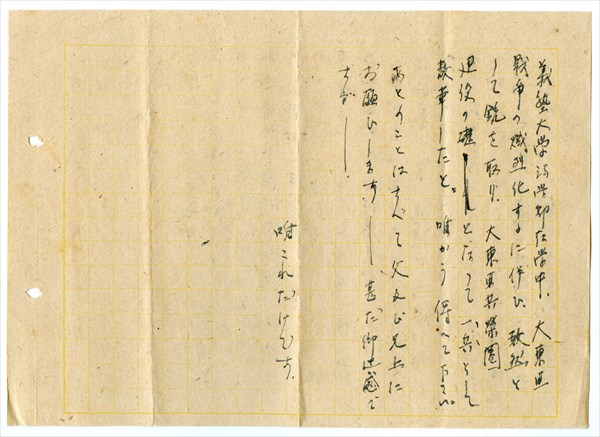 義塾大学法学部在学中、大東亜
戦争の熾烈化するに伴ひ、敢然と
して銃を取り、大東亜共栄圏
建設の礎となつて一兵として
散華したと。唯かう傳へて下さい。
あとのことはすべて父及び兄上に
お願ひします、甚だ御迷惑で
すが
唯これだけです。